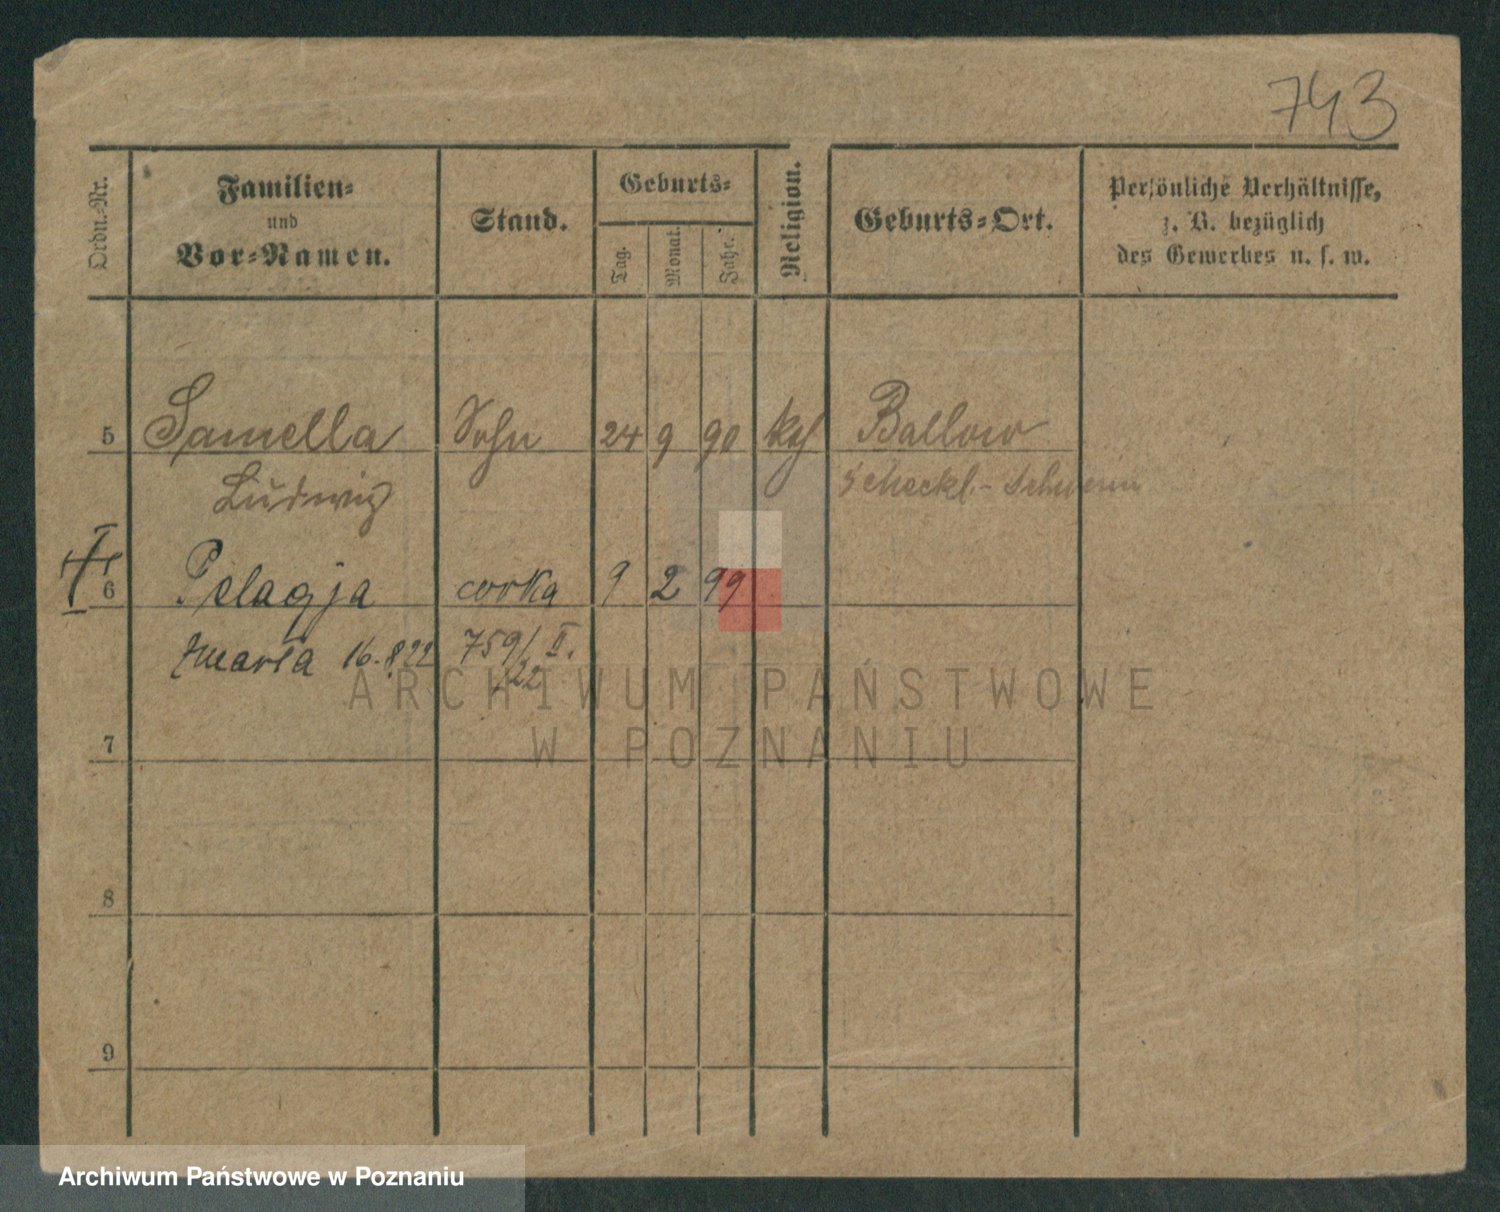 743
Ordn.-Nr.
Familien-
und
Vor-Namen.
Stand.
Geburts-
Tag.
Monat.
Jahr.
Religion.
Geburts-Ort.
Persönliche Verhältnisse,
z. B. bezüglich
des Gewerbes u. s. w.
5 Samella Sohn 24 9 90 kth Ballow
Ludwig Meckl.-Schwerin
6 Pelagja corka 9 2 99
zmarła 16.8.22 759/22 II.
7
8
9
ARCHIWUM PAŃSTWOWE
W POZNANIU
Archiwum Państwowe w Poznaniu